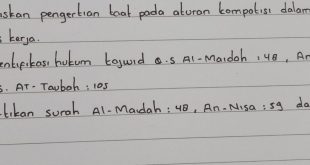 skan pengertian taat pada aturan kompetisi dalam
kerja.
entifikasi hukum tajwid Q.S Al-Maidah : 48, An
S. AT-Taubah : 105
tikan surah Al-Maidah : 48, An-Nisa : 59 da